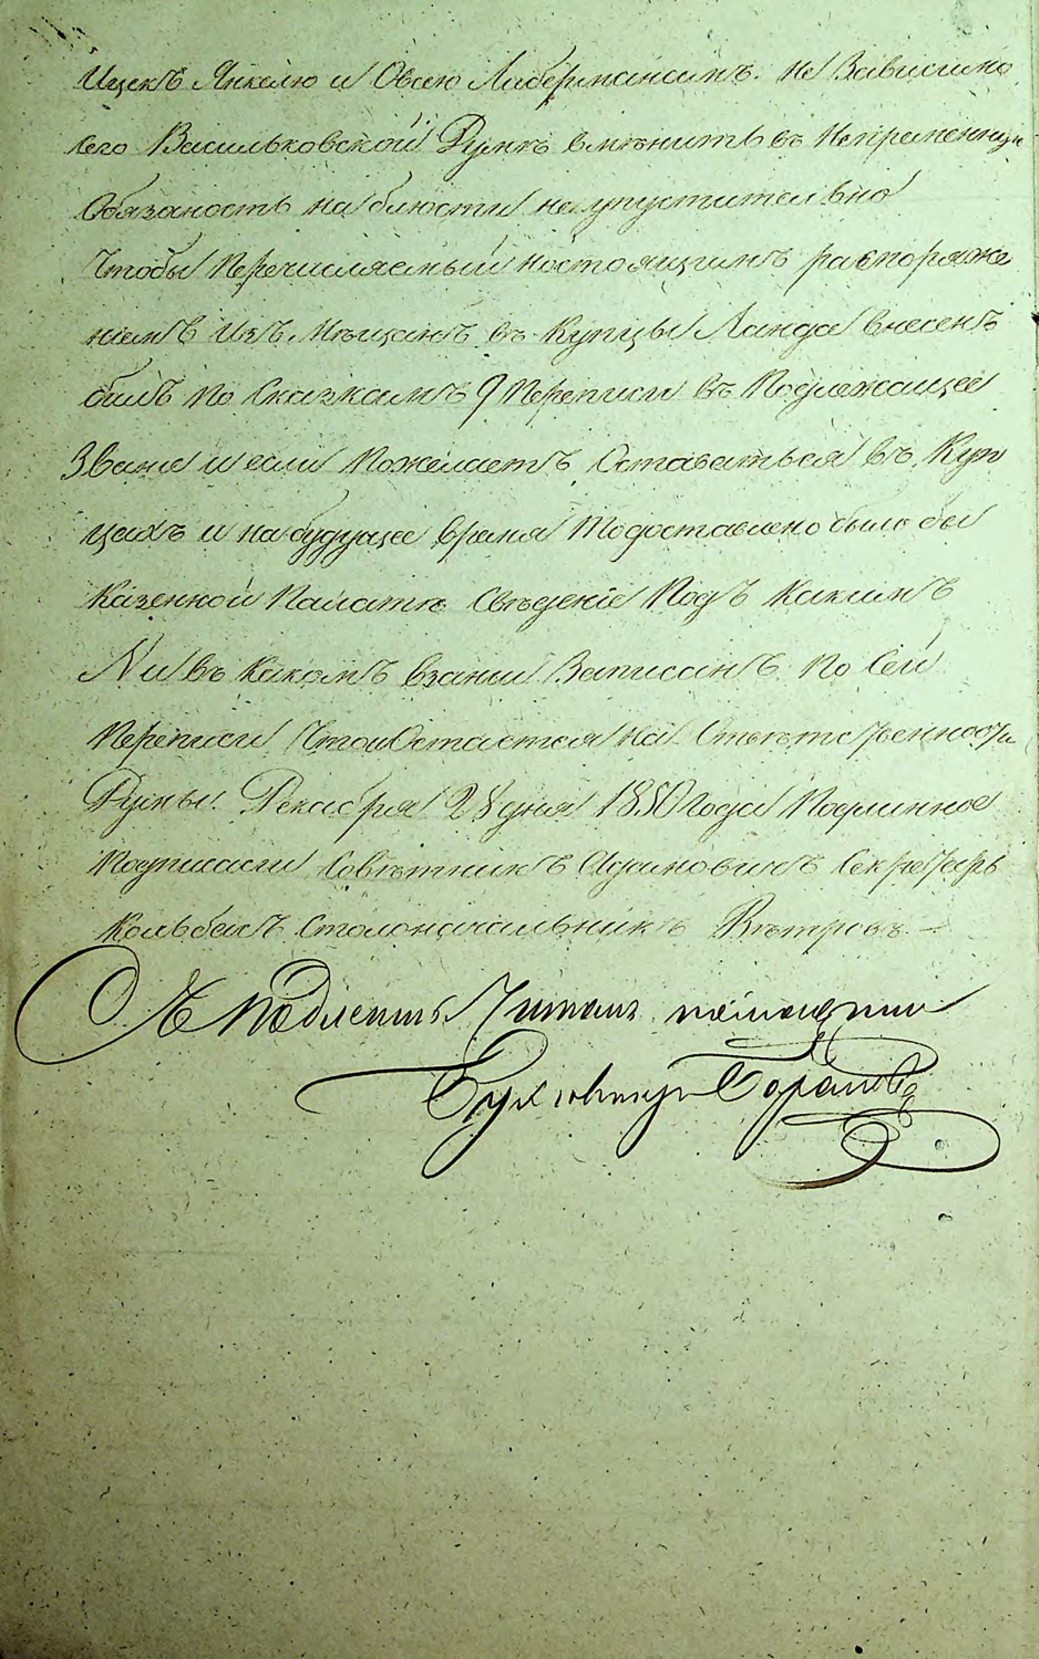 Ицекъ Янкелю и Овсею Либерманамъ. Не Зависимо
сего Васильковской Думѣ вмѣнить въ Непременную
Обязаность наблюсти неупустительно
Чтобы Перечисляемый настоящимъ распоряже
ніемъ Изъ Мѣщанъ въ Купцы Ланда внесенъ
былъ по Сказкамъ 9 Переписи въ Подлежащее
Звание и если Пожелаетъ Оставаться въ Куп
цахъ и на будущее время То доставлено было бы
Казенной Палатѣ Свѣденіе Подъ Какимъ
№ и въ Какомъ звании Записанъ по Сей
Переписи Что и Остается на Ответственности
Думы. Декабря 28 дня 1850 Года Подлинное
Подписали Совѣтникъ Адамовичъ Секретарь
Столоначальникъ Вѣтровъ. —
Съ Подленымъ Читалъ помощникъ
Бухгалтера